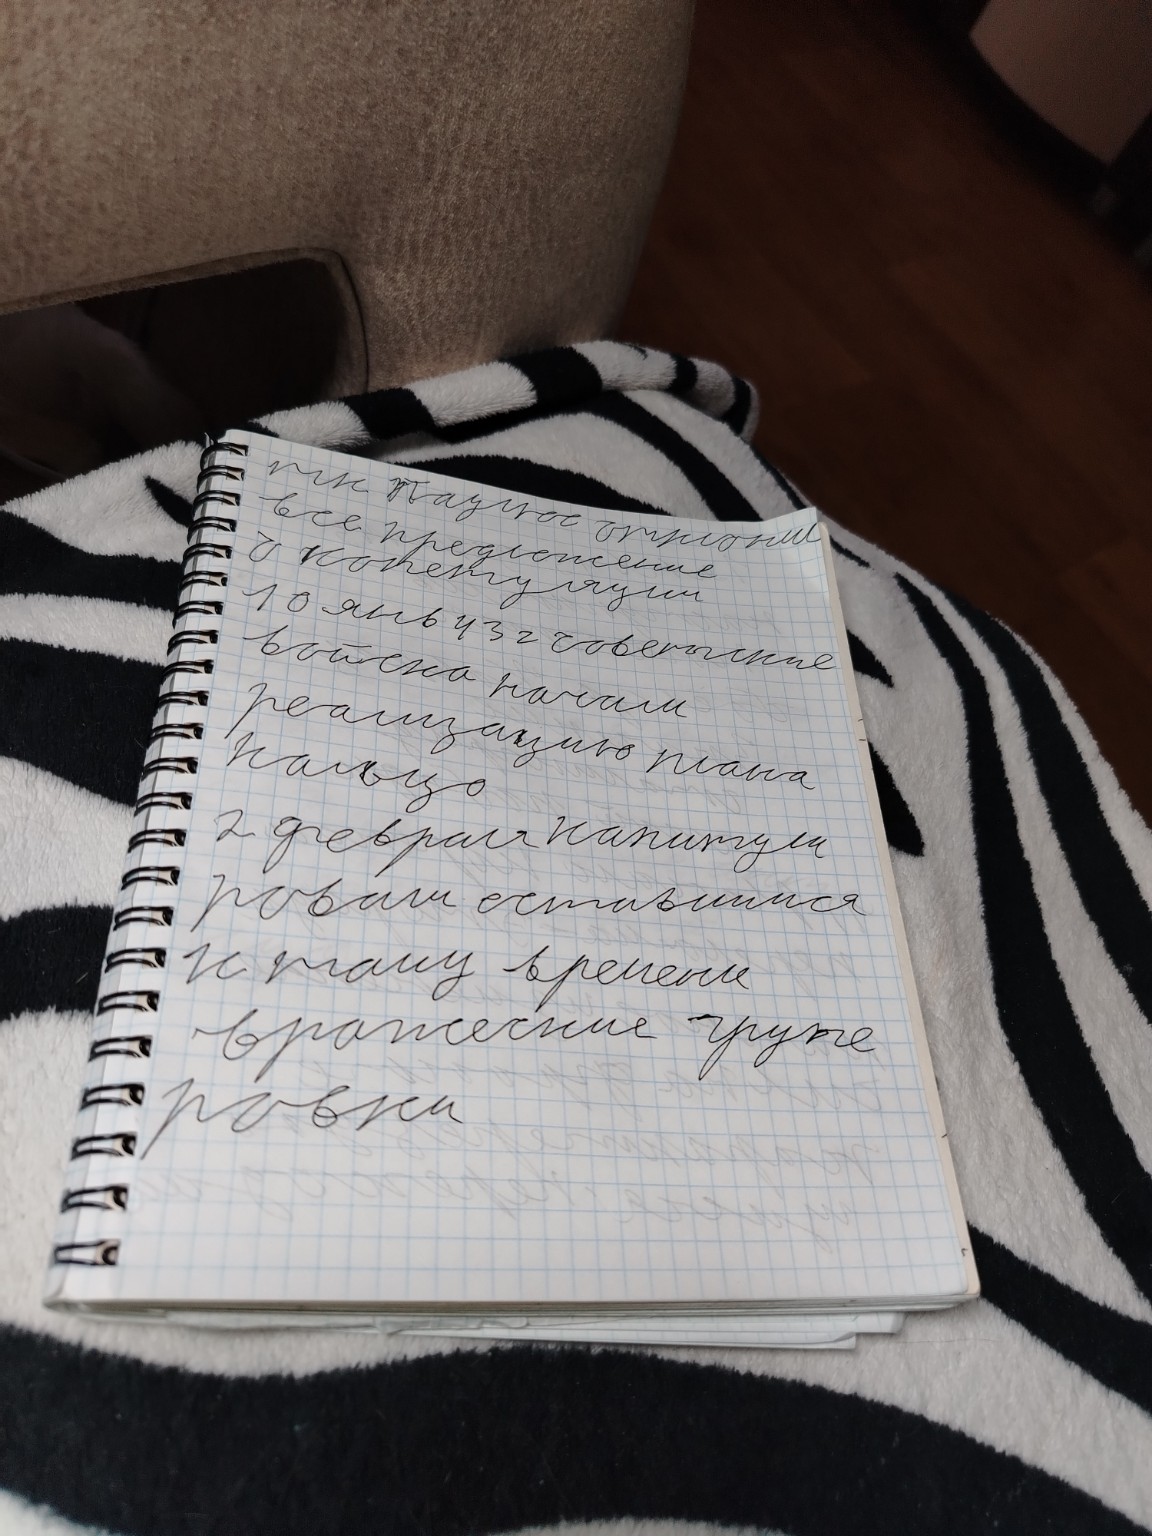 тк Паулюс отклонил
все предложение
о копетуляции
10 янь 43 г советыские
войска начали
реализацию плана
кальцо
2 февраля капитули
ровали оставшиися
к таму времени
вражеские групе
ровки